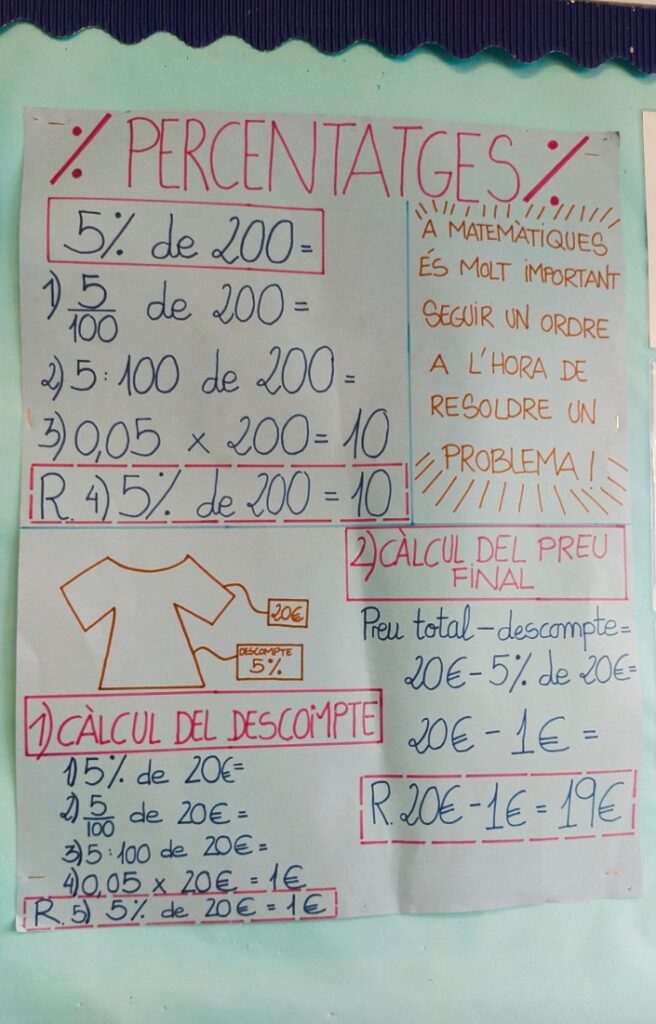 % PERCENTATGES %
5% de 200 =
1) 5/100 de 200 =
2) 5:100 de 200 =
3) 0,05 x 200 = 10
R. 4) 5% de 200 = 10
A MATEMÀTIQUES
ÉS MOLT IMPORTANT
SEGUIR UN ORDRE
A L'HORA DE
RESOLDRE UN
PROBLEMA!
20€
DESCOMPTE
5%
1) CÀLCUL DEL DESCOMPTE
1) 5% de 20€=
2) 5/100 de 20€ =
3) 5:100 de 20€ =
4) 0,05 x 20€ = 1€
R. 5) 5% de 20€ = 1€
2) CÀLCUL DEL PREU
FINAL
Preu total - descompte =
20€ - 5% de 20€=
20€ - 1€ =
R. 20€ - 1€ = 19€